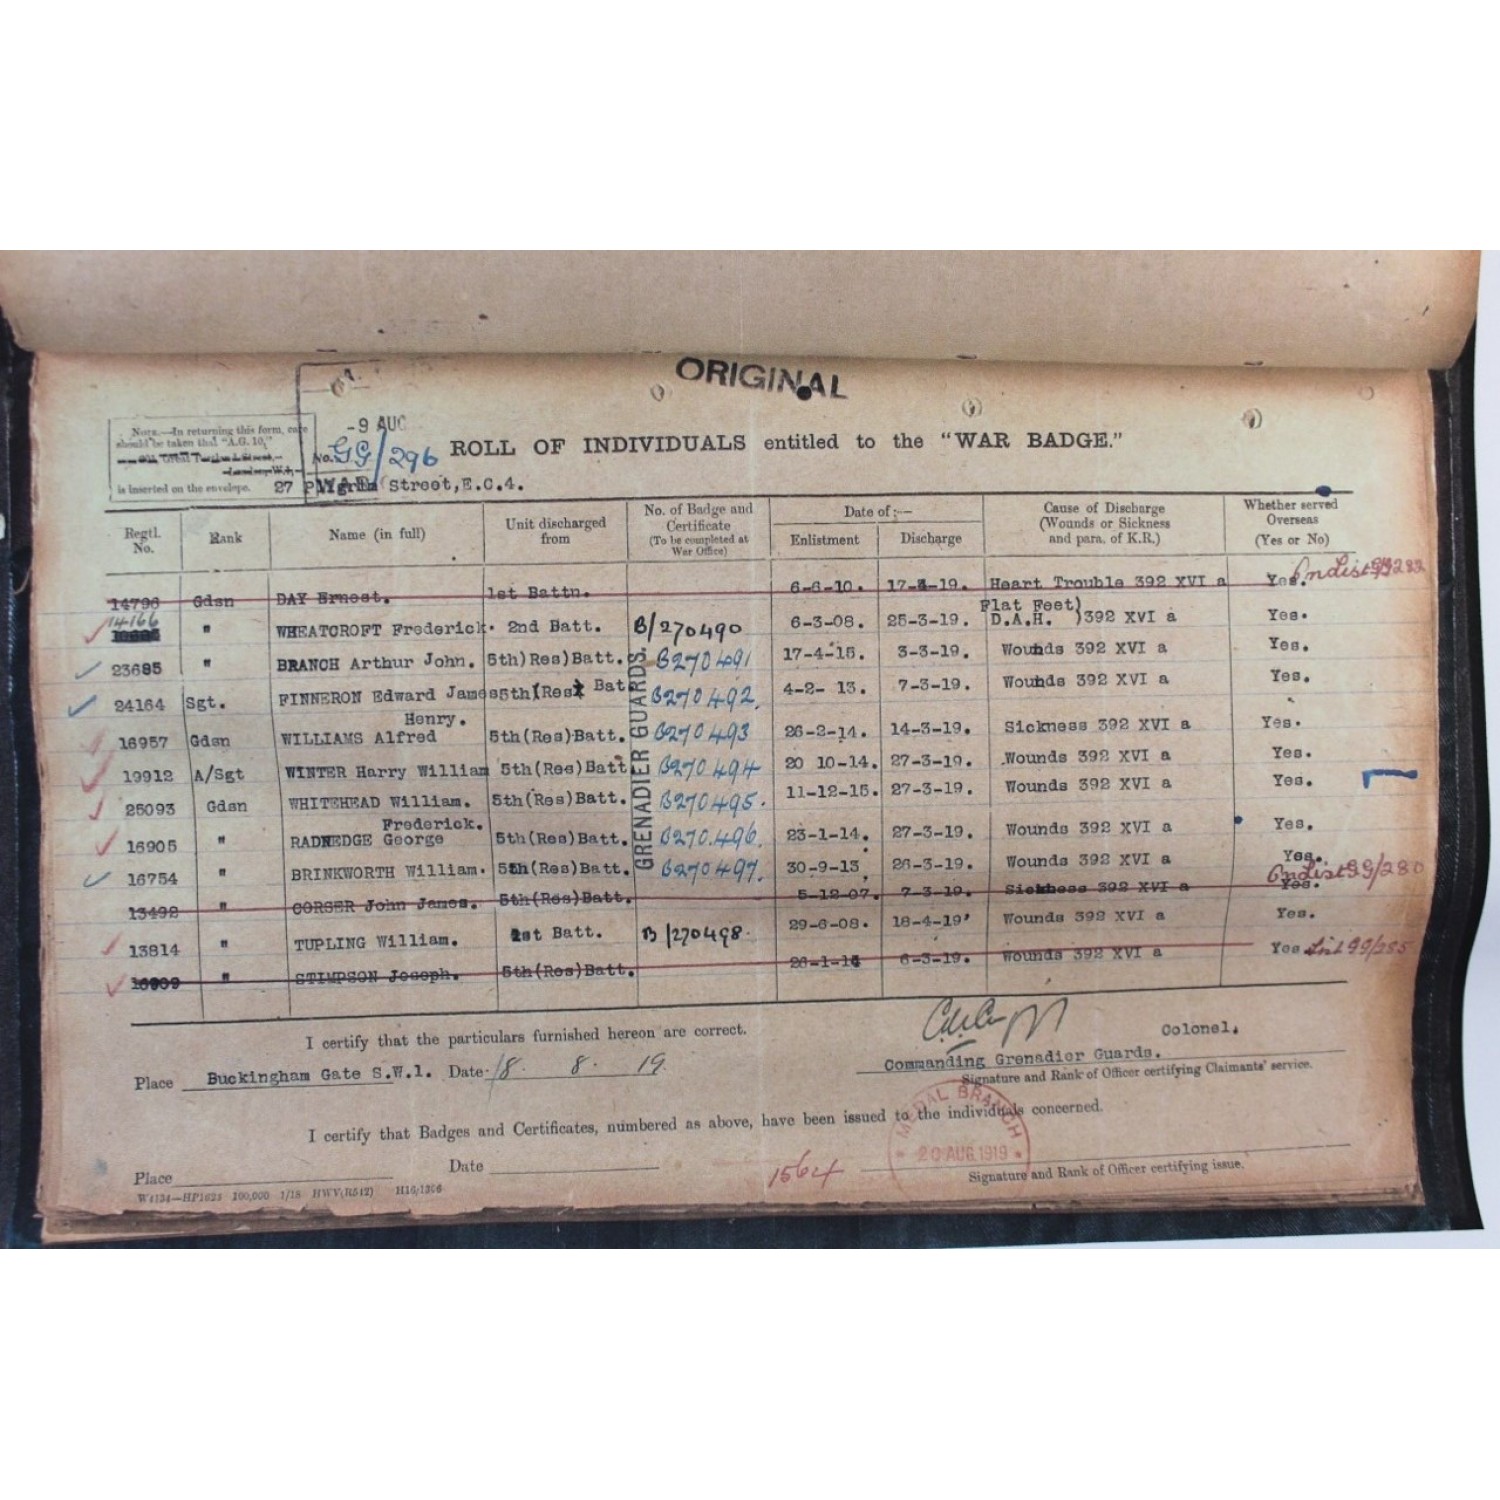 ORIGINAL
NOTE.—In returning this form, care
should be taken that "A.G. 10,"
is inserted on the envelope.
-9 AUG
No. GG/296
ROLL OF INDIVIDUALS entitled to the "WAR BADGE."
27 Pilgrim Street, E.C.4.
Regtl. No. Rank Name (in full) Unit discharged from No. of Badge and Certificate (To be completed at War Office) Date of:— Enlistment Discharge Cause of Discharge (Wounds or Sickness and para. of K.R.) Whether served Overseas (Yes or No)
14796 Gdsn DAY Ernest. 1st Battn. 6-6-10. 17-4-19. Heart Trouble 392 XVI a Yes.
14166 " WHEATCROFT Frederick. 2nd Batt. B/270490 6-3-08. 25-3-19. Flat Feet) D.A.H. )392 XVI a Yes.
23685 " BRANCH Arthur John. 5th)Res)Batt. B270491 17-4-15. 3-3-19. Wounds 392 XVI a Yes.
24164 Sgt. FINNERON Edward James 5th(Res) Bat B270492. 4-2- 13. 7-3-19. Wounds 392 XVI a Yes.
16957 Gdsn WILLIAMS Alfred Henry. 5th(Res)Batt. B270493 26-2-14. 14-3-19. Sickness 392 XVI a Yes.
19912 A/Sgt WINTER Harry William 5th(Res)Batt B270494 20 10-14. 27-3-19. Wounds 392 XVI a Yes.
25093 Gdsn WHITEHEAD William. 5th(Res)Batt. B270495. 11-12-15. 27-3-19. Wounds 392 XVI a Yes.
16905 " RADNEDGE George Frederick. 5th(Res)Batt. B270.496. 23-1-14. 27-3-19. Wounds 392 XVI a Yes.
16754 " BRINKWORTH William. 5th(Res)Batt. B270497. 30-9-13. 26-3-19. Wounds 392 XVI a Yes.
13492 " CORSER John James. 5th(Res)Batt. 5-12-07. 7-3-19. Sickness 392 XVI a Yes.
13814 " TUPLING William. 1st Batt. B/270498. 29-6-08. 18-4-19' Wounds 392 XVI a Yes.
" STIMPSON Joseph. 5th(Res)Batt. 6-3-19. Wounds 392 XVI a Yes List GG/285
GRENADIER GUARDS.
I certify that the particulars furnished hereon are correct.
Colonel.
Commanding Grenadier Guards.
Place Buckingham Gate S.W.1. Date 18. 8. 19.
Signature and Rank of Officer certifying Claimants' service.
I certify that Badges and Certificates, numbered as above, have been issued to the individuals concerned.
MEDAL BRANCH
20 AUG. 1919
1564
Place Date
Signature and Rank of Officer certifying issue.
W4134—HP1623 100,000 1/18 HWV(R542) H16/1306